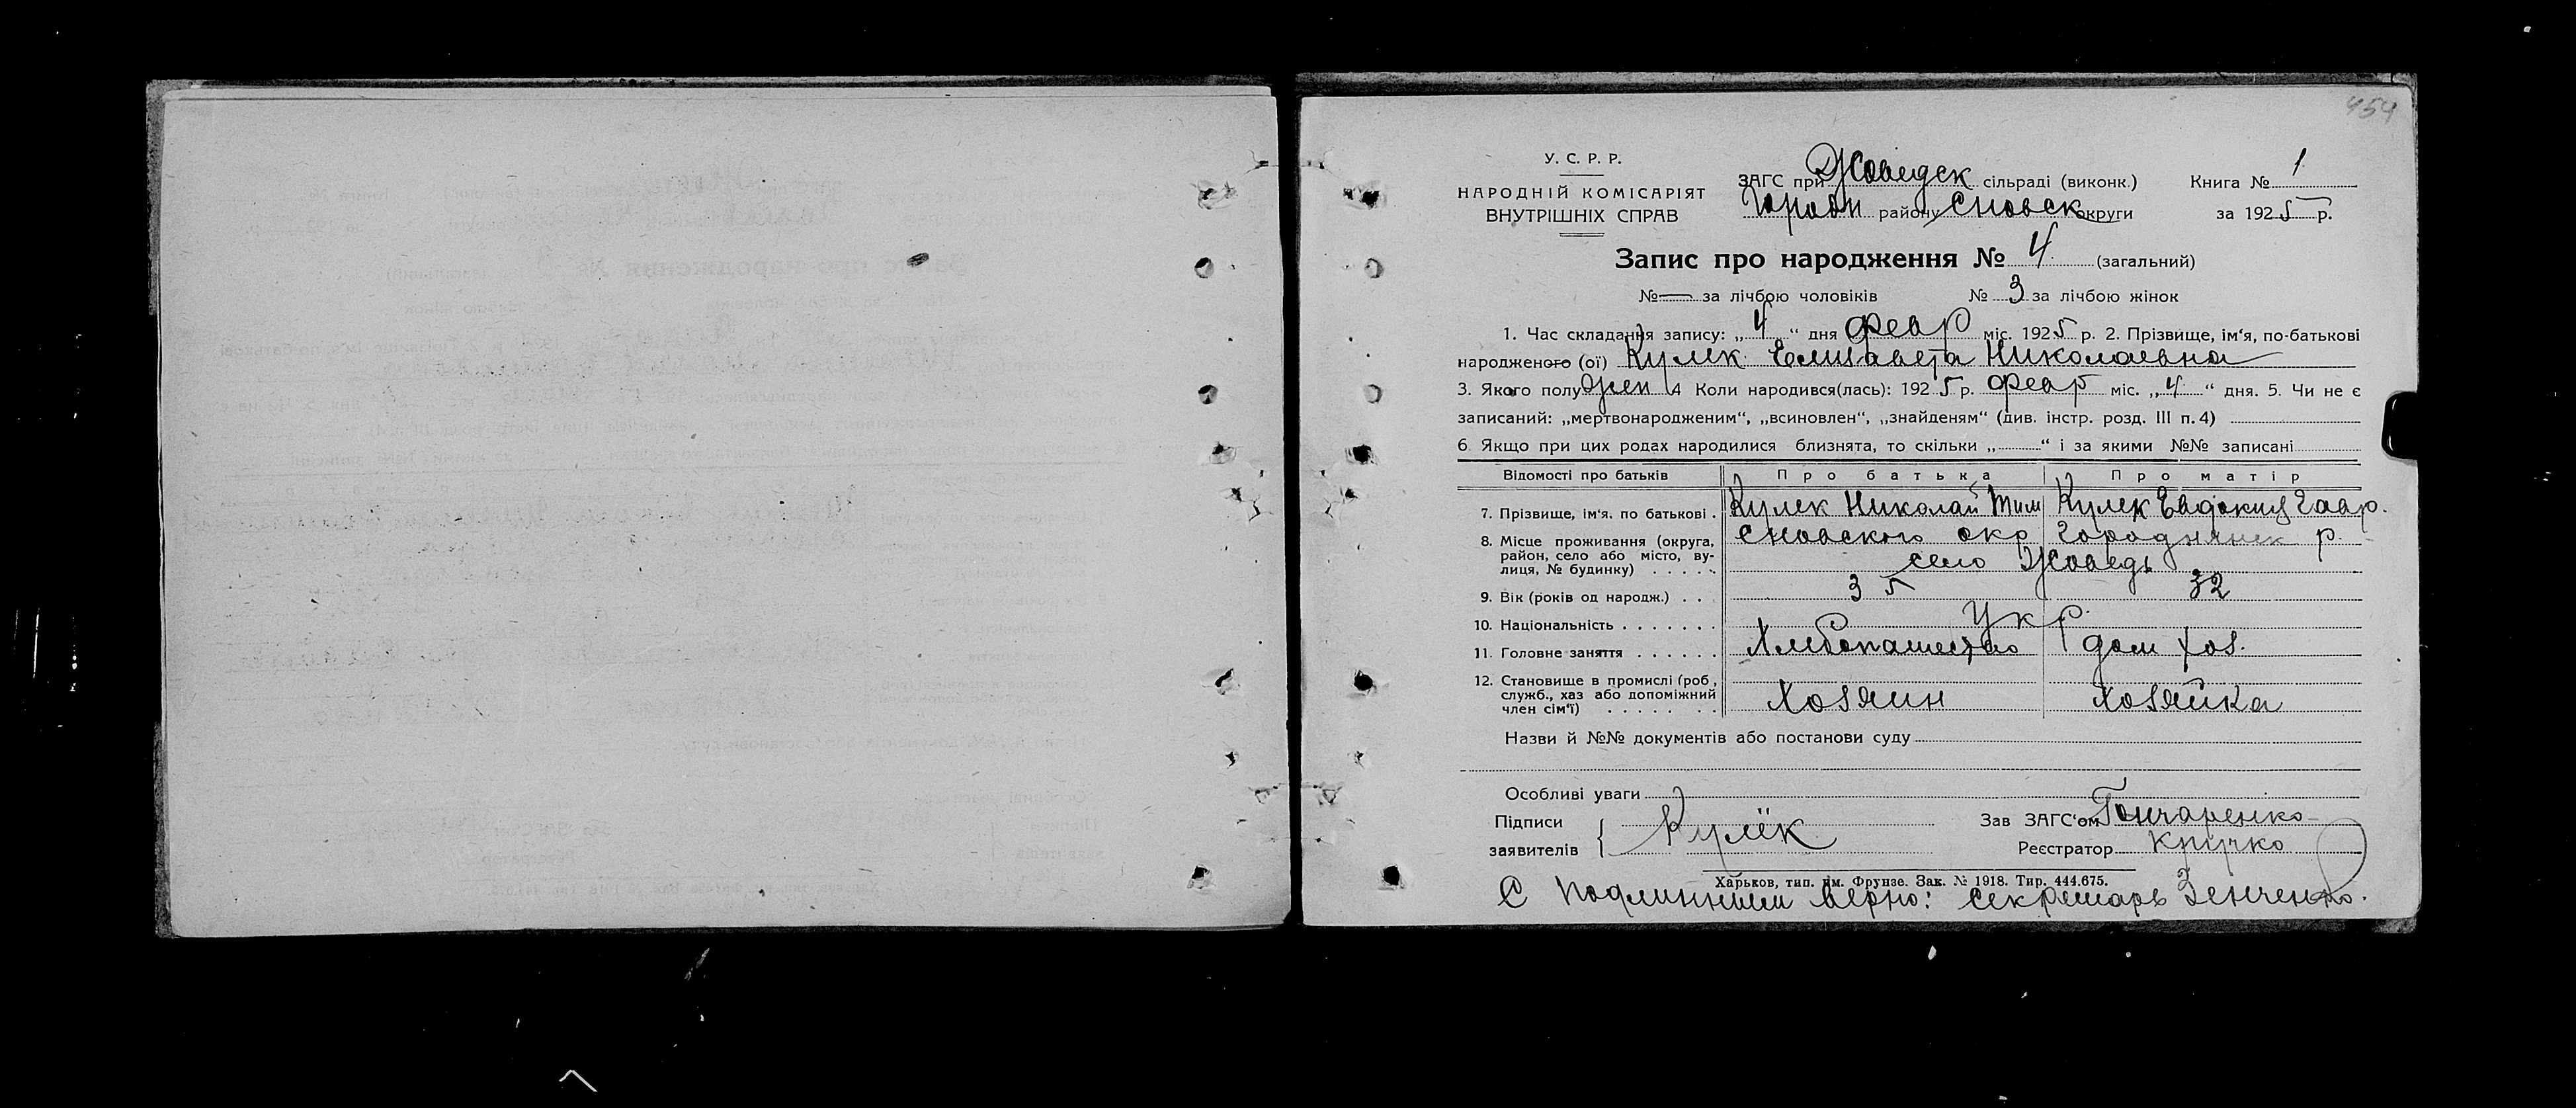 454
У. С. Р. Р.
НАРОДНІЙ КОМІСАРІЯТ
ВНУТРІШНІХ СПРАВ
ЗАГС при Жоведск сільраді (виконк.) Книга № 1
Городн району Сновск округи за 1925 р.
Запис про народження № 4 (загальний)
№ — за лічбою чоловіків № 3 за лічбою жінок
1. Час складання запису: „4“ дня февр міс. 1925 р. 2. Прізвище, ім‘я, по-батькові
народженого (ої) Кулек Елизавета Николаевна
3. Якого полу жен 4 Коли народився(лась): 1925 р. февр міс. „4“ дня. 5. Чи не є
записаний: „мертвонародженим“, „всиновлен“, „знайденям“ (див. інстр. розд. III п. 4)
6 Якщо при цих родах народилися близнята, то скільки „ “ і за якими №№ записані
Відомості про батьків Про батька Про матір
7. Прізвище, ім‘я. по батькові . Кулек Николай Тим Кулек Евдокия Гавр.
8. Місце проживання (округа, Сновского окр Городнянск р.
район, село або місто, ву-
лиця, № будинку) . . . . . село Жоведь
9. Вік (років од народж.) . . . 35 32
10. Національність . . . . . . . Укр
11. Головне заняття . . . . . . Хлебопашество дом хоз.
12. Становище в промислі (роб,
служб., хаз або допоміжний Хозяин хозяйка
член сім‘ї) . . . . . . .
Назви й №№ документів або постанови суду
Особливі уваги
Підписи Зав ЗАГС‘ом Гончаренко
заявителів { Кулёк Реєстратор Кручко
Харьков, тип. им. Фрунзе. Зак. № 1918. Тир. 444.675.
С подлинным верно: секретарь Зенченко.